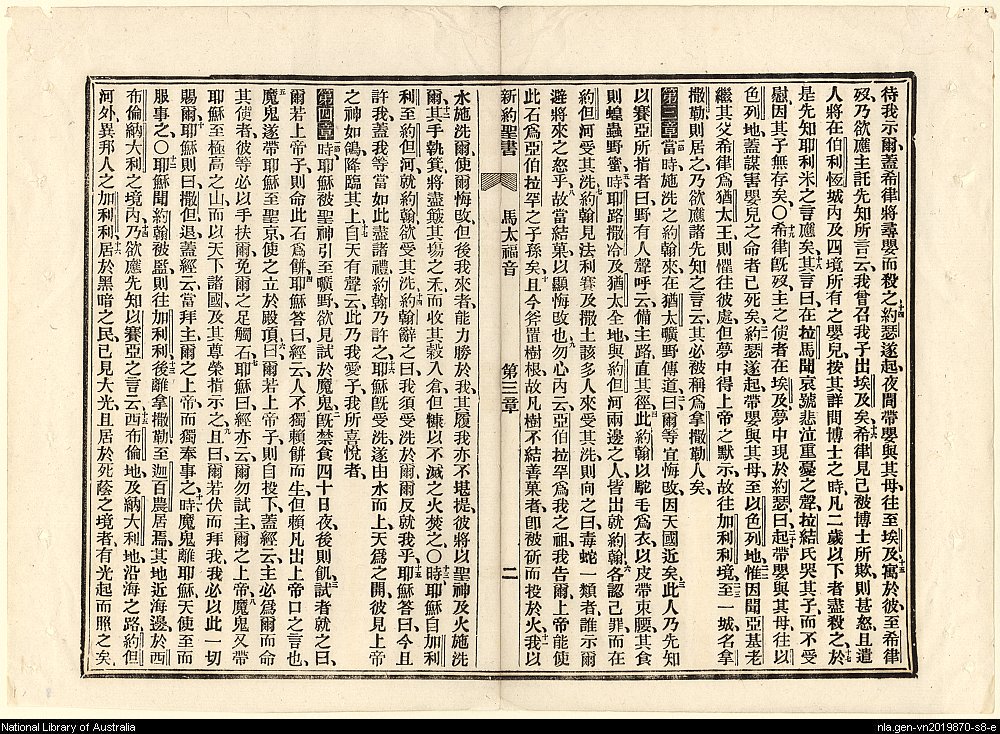 待我示爾、蓋希律將尋嬰而殺之、約瑟遂起、夜間帶嬰與其母往至埃及、寓於彼、至希律
歿、乃欲應主託先知所言云、我曾召我子出埃及矣、希律見己被博士所欺、則甚怒、且遣
人將在伯利恆城內及四境所有之嬰兒、按其詳問博士之時、凡二歲以下者盡殺之、於
是先知耶利米之言應矣、其言曰、在拉馬聞哀號悲泣重憂之聲、拉結氏哭其子而不受
慰、因其子無存矣、〇希律既歿、主之使者在埃及夢中現於約瑟曰、起帶嬰與其母往以
色列地、蓋謀害嬰兒之命者已死矣、約瑟遂起帶嬰與其母、至以色列地、惟因聞亞基老
繼其父希律爲猶太王、則懼往彼處、但夢中得上帝之默示、故往加利利境、至一城名拿
撒勒、則居之、乃欲應諸先知之言云、其必被稱爲拿撒勒人矣、
第三章 當時施洗之約翰來在猶太曠野傳道曰、爾等宜悔改、因天國近矣、此人乃先知
以賽亞所指者曰、野有人聲呼云、備主路、直其徑、此約翰以駝毛爲衣、以皮帶束腰、其食
則蝗蟲野蜜、時耶路撒冷及猶太全地、與約但河兩邊之人、皆出就約翰、各認己罪、而在
約但河受其洗、約翰見法利賽及撒土該多人來受其洗、則向之曰、毒蛇一類者、誰示爾
避將來之怒乎、故當結菓以顯悔改也、勿心內云、亞伯拉罕爲我之祖、我告爾上帝能使
此石爲亞伯拉罕之子孫矣、且今斧置樹根、故凡樹不結善菓者、卽被斫而投於火、我以
新約聖書 馬太福音 第三章 二
水施洗爾、使爾悔改、但後我來者能力勝於我、其履我亦不堪提、彼將以聖神及火施洗
爾、其手執箕、將盡簸其場之禾、而收其穀入倉、但糠以不滅之火焚之、〇時耶穌自加利
利至約但河、就約翰欲受其洗、約翰辭之曰、我須受洗於爾、爾反就我乎、耶穌答曰、今且
許我、蓋我等當如此盡諸禮、約翰乃許之、耶穌既受洗、遂由水而上、天爲之開、彼見上帝
之神如鴿降臨其上、自天有聲云、此乃我愛子我所喜悅者、
第四章 時耶穌被聖神引至曠野、欲見試於魔鬼、既禁食四十日夜、後則飢、試者就之曰、
爾若上帝子、則命此石爲餅、耶穌答曰、經云、人不獨賴餅而生、但賴凡出上帝口之言也、
魔鬼遂帶耶穌至聖京、使之立於殿頂曰、爾若上帝子、則自投下、蓋經云、主必爲爾而命
其使者、彼等必以手扶爾、免爾之足觸石、耶穌曰、經亦云、爾勿試主爾之上帝、魔鬼又帶
耶穌至極高之山、而以天下諸國及其尊榮指示之、且曰、爾若伏而拜我、我必以此一切
賜爾、耶穌則曰、撒但退、蓋經云、當拜主爾之上帝、而獨奉事之、時魔鬼離耶穌、天使至而
服事之、〇耶穌聞約翰被監、則往加利利、後離拿撒勒、至迦百農居焉、其地近海邊、於西
布倫納大利之境內、乃欲應先知以賽亞之言云、西布倫地及納大利地、沿海之路、約但
河外異邦人之加利利、居於黑暗之民、已見大光、且居於死蔭之境者、有光起而照之矣、
National Library of Australia
nla.gen-vn2019870-s8-e